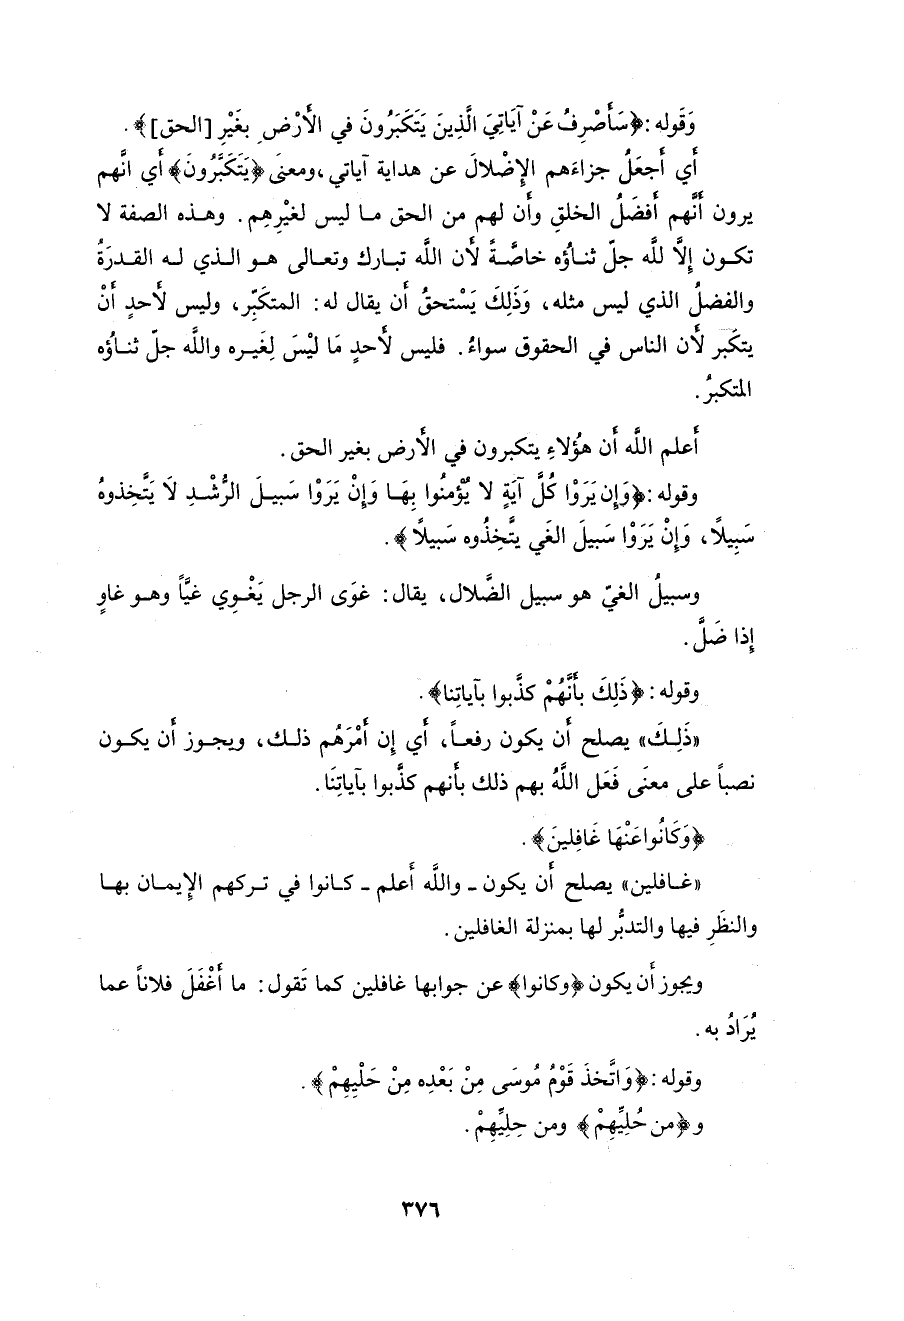 وَقوله: ﴿سَأَصْرِفُ عَنْ آيَاتِيَ الَّذِينَ يَتَكَبَرُونَ في الأَرْضِ بِغَيْرِ [الحق]﴾.
أَي أَجعَلُ جزاءَهم الإِضْلالَ عن هداية آياتي، ومعنَى ﴿يَتَكَبَّرُونَ﴾ أَي انَّهم
يرون أَنَّهم أَفضَلُ الخلقِ وأَن لهم من الحق ما ليس لغيْرِهِم. وهذه الصفة لا
تكون إِلَّا لله جلّ ثناؤه خاصَّةً لأَن اللَّه تبارك وتعالى هو الذي له القدرَةُ
والفضلُ الذي ليس مثله، وَذَلِكَ يَسْتحقُ أَن يقال له: المتكَبِّر، وليس لأحدٍ أَنْ
يتكَبر لأن الناس في الحقوق سواءُ. فليس لأحدٍ مَا ليْسَ لِغَيره واللَّه جلّ ثناؤه
المتكبرُ.
أَعلم اللَّه أَن هؤُلاءِ يتكبرون في الأَرض بغير الحق.
وقوله: ﴿وَإِن يَرَوْا كُلَّ آيَةٍ لا يُؤْمنُوا بِهَا وَإِنْ يَرَوْا سَبيلَ الرُّشْدِ لَا يَتَّخِذوهُ
سَبِيلاً، وَإِنْ يَرَوْا سَبيلَ الغَي يتَّخِذُوه سَبيلاً﴾.
وسبيلُ الغيّ هو سبيل الضَّلال، يقال: غوَى الرجل يَغْوِي غيَّاً وهو غاوٍ
إِذا ضَلَّ.
وقوله: ﴿ذَلِكَ بأَنَّهُمْ كذَّبوا بآياتِنا﴾.
«ذَلِكَ» يصلح أَن يكون رفعاً، أَي إِن أَمْرَهُم ذلك، ويجوز أَن يكون
نصباً على معنَى فَعَل اللَّهُ بهم ذلك بأَنهم كذَّبوا بآياتِنَا.
﴿وَكَانُوا عَنْهَا غَافِلينَ﴾.
«غافلين» يصلح أَن يكون - واللَّه أَعلم - كانوا في تركهم الإِيمان بها
والنظَرِ فيها والتدبُّر لها بمنزلة الغافلين.
ويجوز أَن يكون ﴿وكانوا﴾ عن جوابها غافلين كما تَقول: ما أَغْفَلَ فلاناً عما
يُرَادُ به.
وقوله: ﴿وَاتَّخذَ قَوْمُ مُوسَى مِنْ بَعْدِه مِنْ حَلْيِهِمْ﴾.
و﴿من حُلِيِّهِمْ﴾ ومن حِلِيِّهِمْ.
٣٧٦